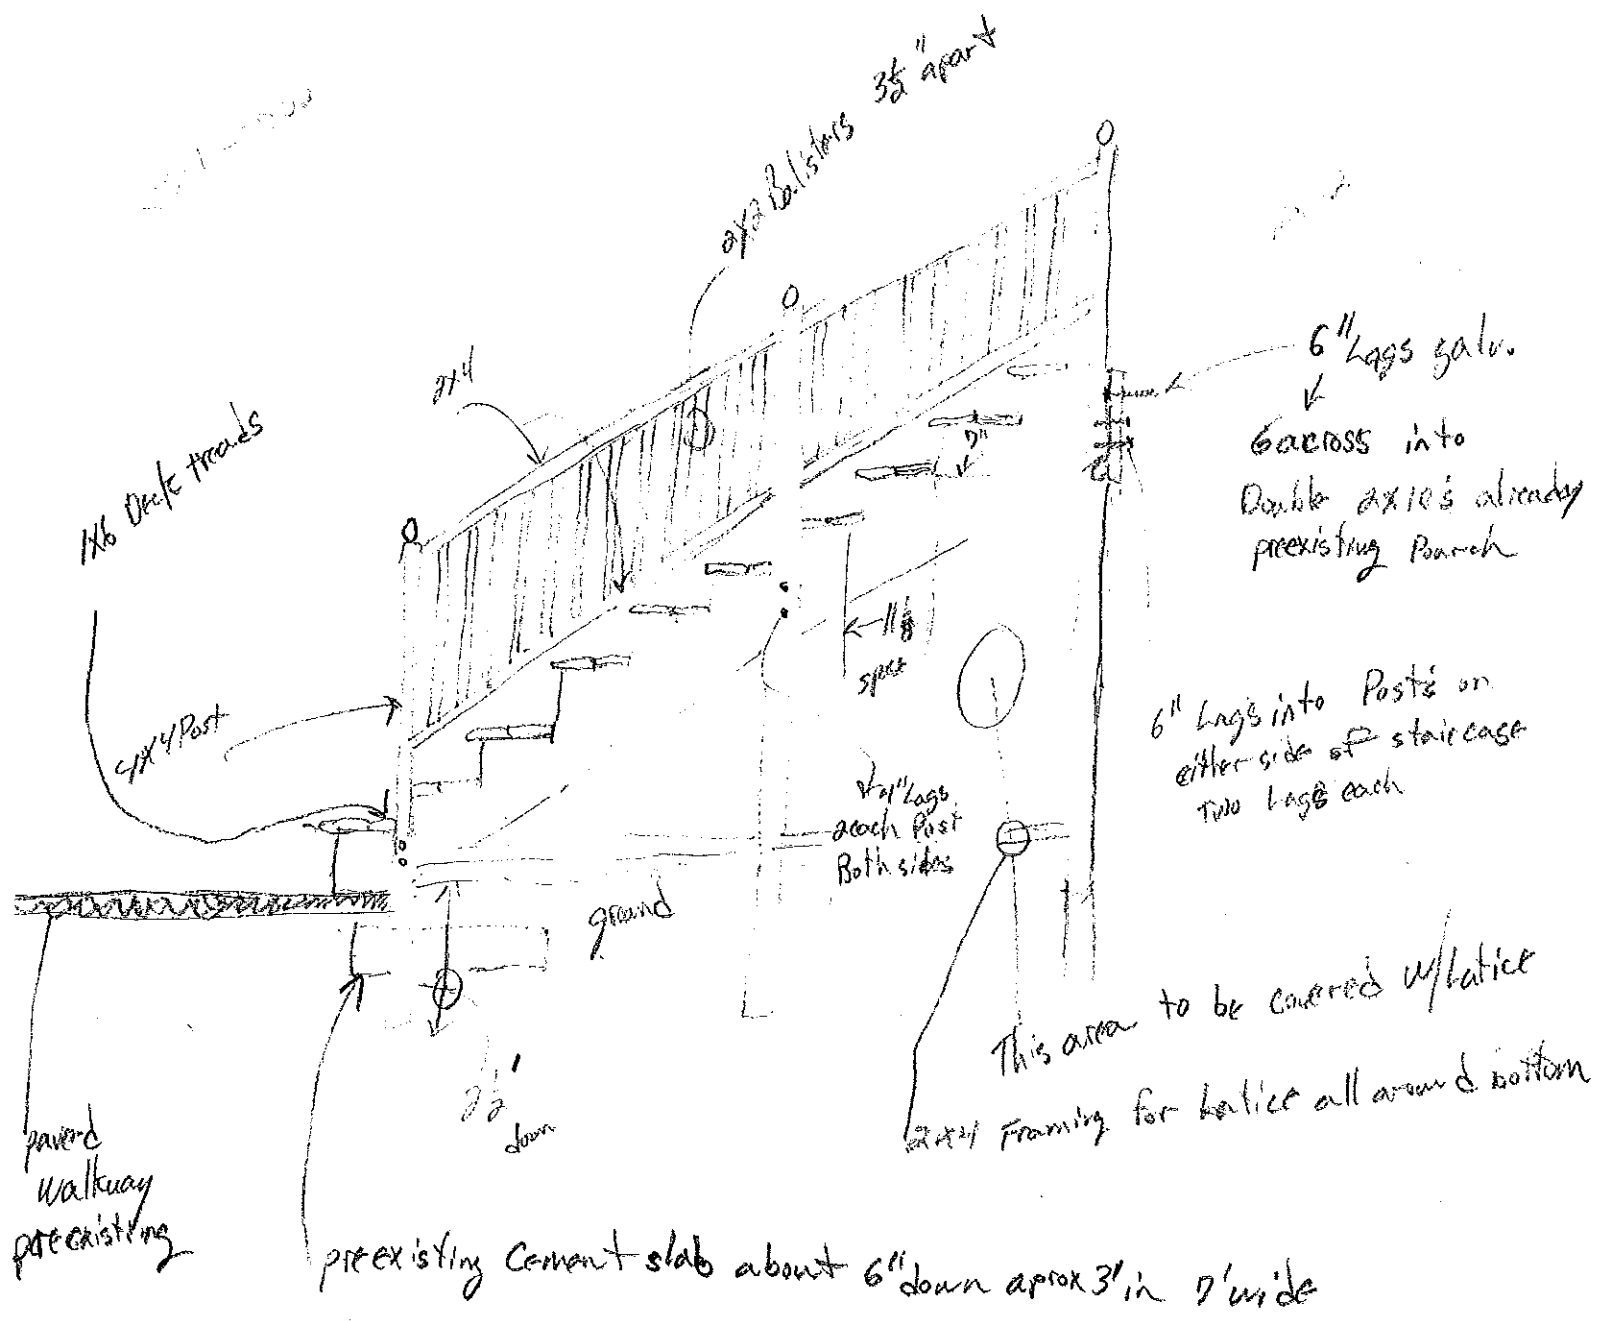 2x2 Balisters 3½" apart
2x4
1x6 Deck treads
4x4 Post
6" Lags galv.
6 across into
Double 2x10's already
preexisting Poarch
7"
11⅛
6" Lags into Posts on
either side of staircase
Two Lags each
4" Lags
2 each Post
Both sides
ground
2½'
down
This area to be covered w/Latice
2x4 Framing for Latice all around bottom
paverd
walkway
preexisting
preexisting Cement slab about 6" down aprox 3' in 7' wide